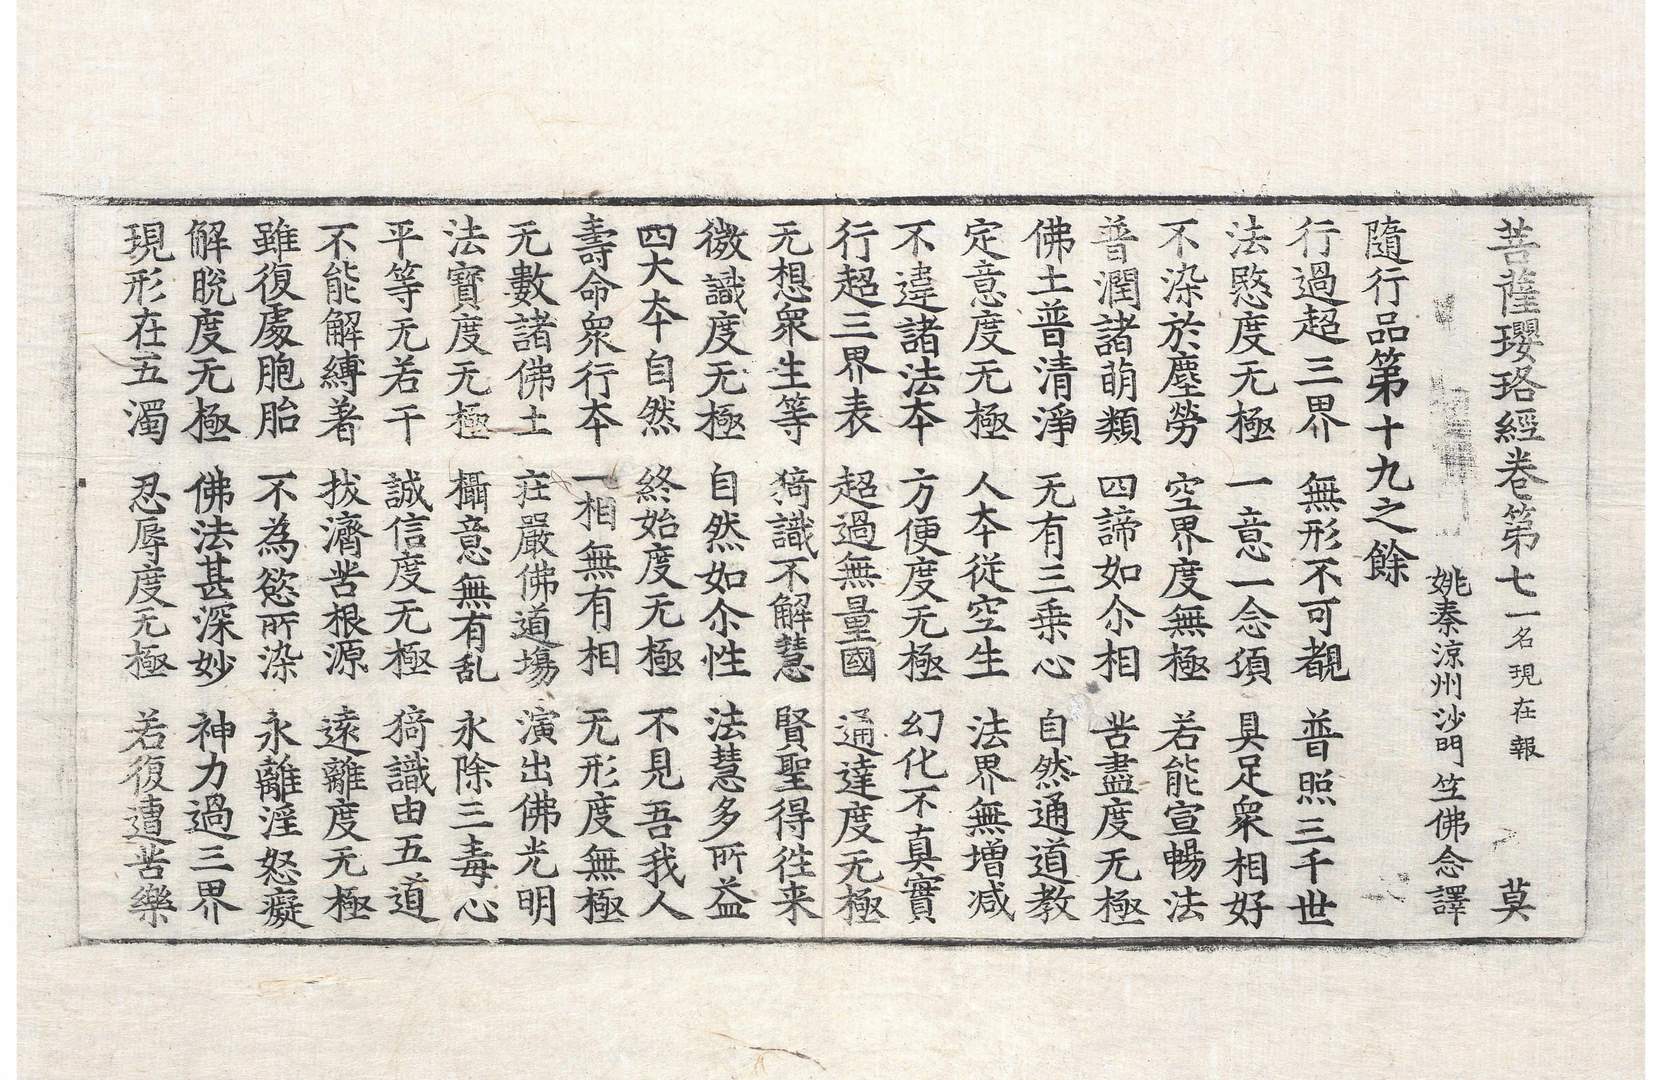 菩薩瓔珞經卷第七一名現在報 莫
姚秦涼州沙門竺佛念譯
隨行品第十九之餘
行過超三界 無形不可覩 普照三千世
法愍度无極 一意一念須 具足衆相好
不染於塵勞 空界度無極 若能宣暢法
普潤諸萌類 四諦如尒相 苦盡度无極
佛土普清淨 无有三乗心 自然通道教
定意度无極 人夲從空生 法界無增减
不違諸法夲 方便度无極 幻化不真實
行超三界表 超過無量國 通達度无極
无想衆生等 猗識不解慧 賢聖得往来
微識度无極 自然如尒性 法慧多所益
四大夲自然 終始度无極 不見吾我人
壽命衆行夲 一相無有相 无形度無極
无數諸佛土 莊嚴佛道場 演出佛光明
法寶度无極 攝意無有乱 永除三毒心
平等无若干 誠信度无極 猗識由五道
不能解縛著 拔濟苦根源 遠離度无極
雖復處胞胎 不為慾所染 永離淫怒癡
解脫度无極 佛法甚深妙 神力過三界
現形在五濁 忍辱度无極 若復遭苦樂